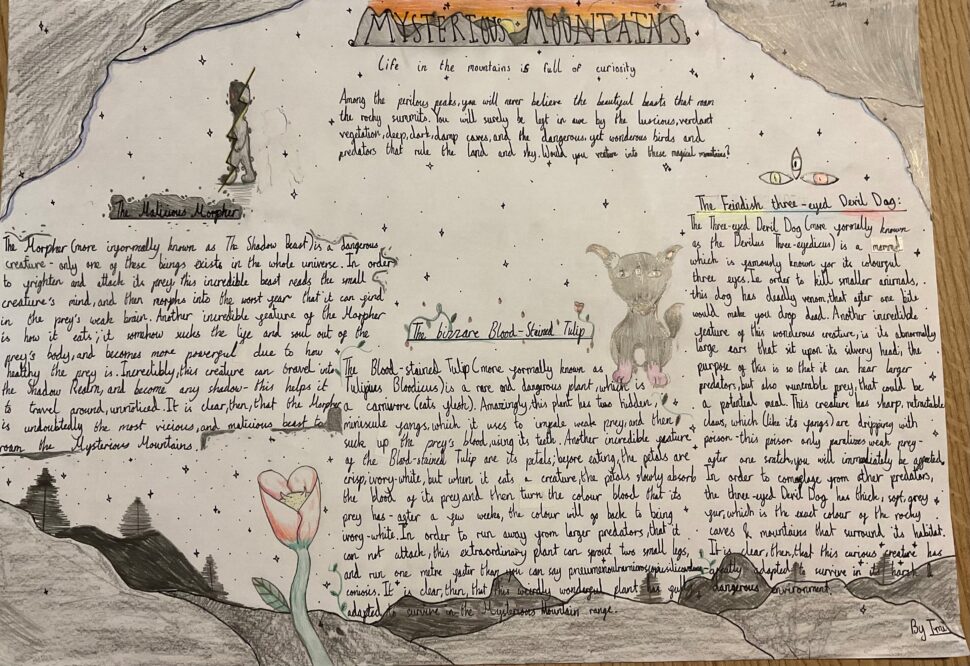 Imi
MYSTERIOUS MOUNTAINS
Life in the mountains is full of curiosity
Among the perilous peaks, you will never believe the beautiful beasts that roam
the rocky summits. You will surely be left in awe by the luscious, verdant
vegetation, deep, dark, damp caves, and the dangerous, yet wonderous birds and
predators that rule the land and sky. Would you venture into these magical mountains?
The Malicious Morpher
The Morpher (more informally known as The Shadow Beast) is a dangerous
creature - only one of these beings exists in the whole universe. In order
to frighten and attack its prey this incredible beast reads the small
creature's mind, and then morphs into the worst fear that it can find
in the prey's weak brain. Another incredible feature of the Morpher
is how it eats; it somehow sucks the life and soul out of the
prey's body, and becomes more powerful due to how
healthy the prey is. Incredibly, this creature can travel into
the Shadow Realm, and become any shadow - this helps it
to travel around, unnoticed. It is clear, then, that the Morpher
is undoubtedly the most vicious, and malicious beast to
roam the Mysterious Mountains
The bizzare Blood-Stained Tulip
The Blood-stained Tulip (more formally known as
Tulipius Bloodicus) is a rare and dangerous plant, which is
a carnivore (eats flesh). Amazingly, this plant has two hidden,
miniscule fangs, which it uses to impale weak prey, and then
suck up the prey's blood, using its teeth. Another incredible feature
of the Blood-stained Tulip are its petals; before eating, the petals are
crisp, ivory-white, but when it eats a creature, the petals slowly absorb
the blood of its prey, and then turn the colour blood that its
prey has - after a few weeks, the colour will go back to being
ivory-white. In order to run away from larger predators, that it
can not attack, this extraordinary plant can sprout two small legs,
and run one metre faster than you can say
It is clear, then, that this weirdly wonderful plant has fully
adapted to survive in the Mysterious Mountain range.
The Feindish three-eyed Devil Dog:
The Three-eyed Devil Dog (more formally known
as the Devilus Three-eyedicus) is a
which is famously known for its colourful
three eyes. In order to kill smaller animals,
this dog has deadly venom, that after one bite
would make you drop dead. Another incredible
feature of this wonderous creature, is its abnormally
large ears that sit upon its silvery head; the
purpose of this is so that it can hear larger
predators, but also vunerable prey, that could be
a potential meal. This creature has sharp, retractable
claws, which (like its fangs) are dripping with
poison - this poison only paralizes weak prey -
after one scratch, you will immediately be affected.
In order to from other predators,
the three-eyed Devil Dog has thick, soft, grey
fur, which is the exact colour of the rocky
caves & mountains that surround its habitat.
It is clear, then, that this curious creature has
greatly adapted to survive in its harsh &
dangerous environment.
By Imi